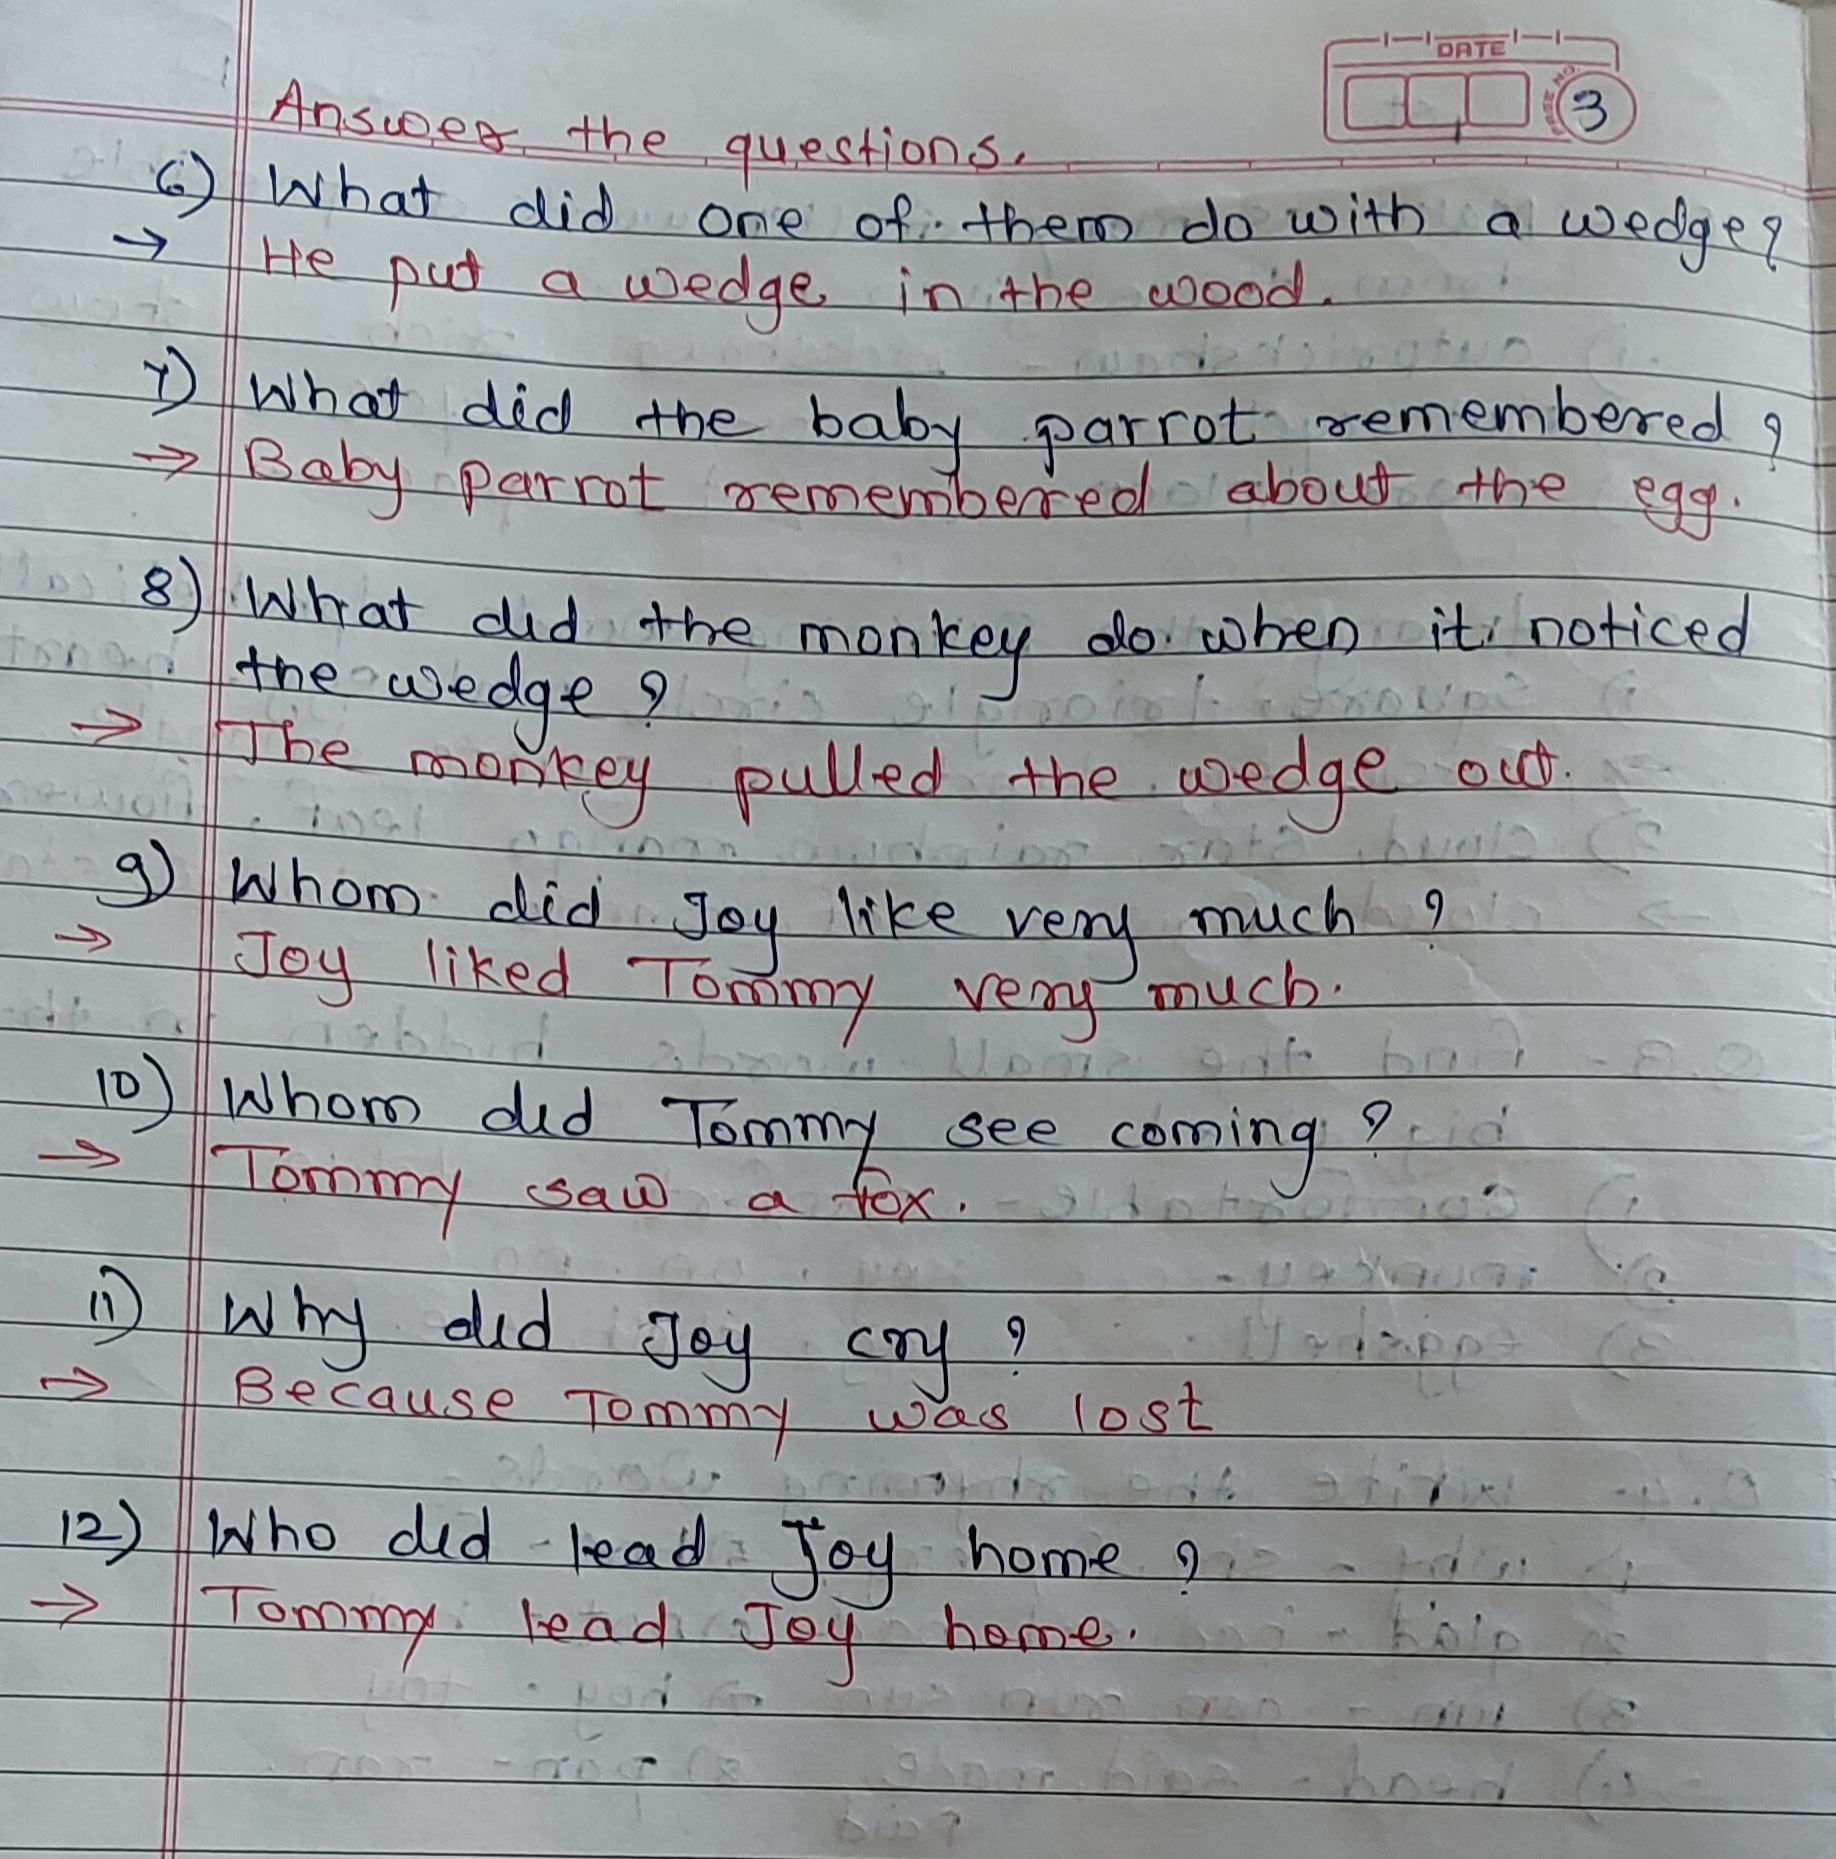 DATE
PAGE NO. 3
Answer the questions.
6) What did one of them do with a wedge?
→ He put a wedge in the wood.
7) What did the baby parrot remembered?
→ Baby parrot remembered about the egg.
8) What did the monkey do when it noticed
the wedge?
→ The monkey pulled the wedge out.
9) Whom did Joy like very much?
→ Joy liked Tommy very much.
10) Whom did Tommy see coming?
→ Tommy saw a fox.
11) Why did Joy cry?
→ Because Tommy was lost
12) Who did lead Joy home?
→ Tommy lead Joy home.